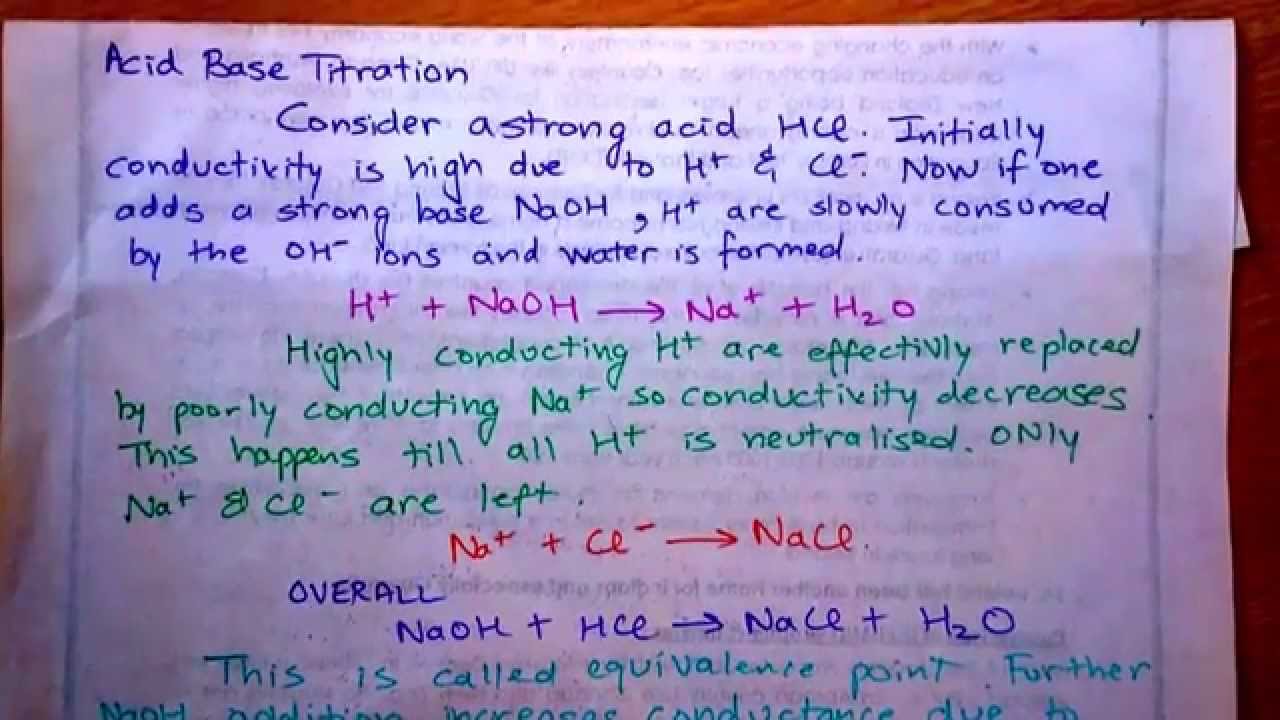 Acid Base Titration
Consider a strong acid HCl. Initially
conductivity is high due to H⁺ & Cl⁻. Now if one
adds a strong base NaOH, H⁺ are slowly consumed
by the OH⁻ ions and water is formed.
H⁺ + NaOH → Na⁺ + H₂O
Highly conducting H⁺ are effectivly replaced
by poorly conducting Na⁺ so conductivity decreases.
This happens till all H⁺ is neutralised. ONLY
Na⁺ & Cl⁻ are left.
Na⁺ + Cl⁻ → NaCl.
OVERALL
NaOH + HCl → NaCl + H₂O
This is called equivalence point. Further
NaOH addition increases conductance due to